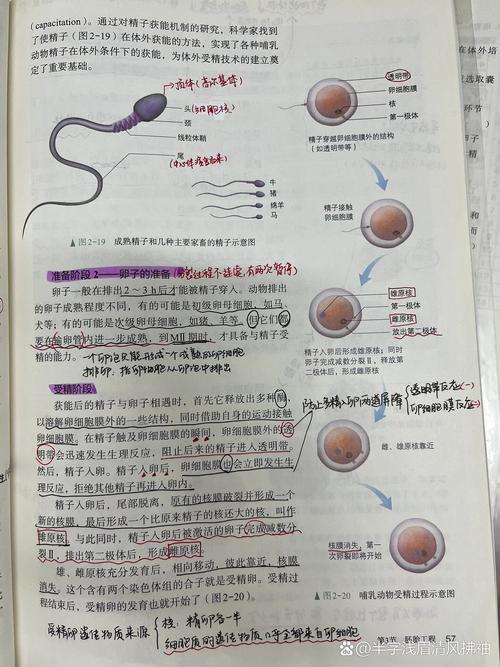 (capacitation)。通过对精子获能机制的研究，科学家找到
了使精子（图2-19）在体外获能的方法，实现了各种哺乳
动物精子在体外条件下的获能，为体外受精技术的建立奠
定了重要基础。
顶体(高尔基体)
头(细胞核)
颈
线粒体鞘
尾
牛
猪
绵羊
马
图2-19 成熟精子和几种主要家畜的精子示意图
透明带
卵细胞膜
核
第一极体
精子穿越卵细胞膜外的结构
（如透明带等）
精子接触
卵细胞膜
雄原核
第一极体
雌原核
放出第二极体
精子入卵后形成雄原核；同时
卵子完成减数分裂Ⅱ，释放第
二极体后，形成雌原核
雌、雄原核靠近
核膜消失，第一
次卵裂即将开始
图2-20 哺乳动物受精过程示意图
准备阶段2——卵子的准备
卵子一般在排出2~3 h后才能被精子穿入。动物排出
的卵子成熟程度不同，有的可能是初级卵母细胞，如马、
犬等；有的可能是次级卵母细胞，如猪、羊等。但它们都
要在输卵管内进一步成熟，到MⅡ期时，才具备与精子受
精的能力。
受精阶段
获能后的精子与卵子相遇时，首先它释放出多种酶，
以溶解卵细胞膜外的一些结构，同时借助自身的运动接触
卵细胞膜。在精子触及卵细胞膜的瞬间，卵细胞膜外的透
明带会迅速发生生理反应，阻止后来的精子进入透明带。
然后，精子入卵。精子入卵后，卵细胞膜也会立即发生生
理反应，拒绝其他精子再进入卵内。
防止多精入卵两道屏障
透明带反应
卵细胞膜反应
精子入卵后，尾部脱离，原有的核膜破裂并形成一个
新的核膜，最后形成一个比原来精子的核还大的核，叫作
雄原核。与此同时，精子入卵后被激活的卵子完成减数分
裂Ⅱ，排出第二极体后，形成雌原核。
雄、雌原核充分发育后，相向移动，彼此靠近，核膜
消失。这个含有两个染色体组的合子就是受精卵。受精过
程结束后，受精卵的发育也就开始了（图2-20）。
受精卵遗传物质来源
核：精卵各一半
细胞质的遗传物质几乎全部来自卵细胞
第3节 胚胎工程 57
知乎 @半字浅眉清风拂袖